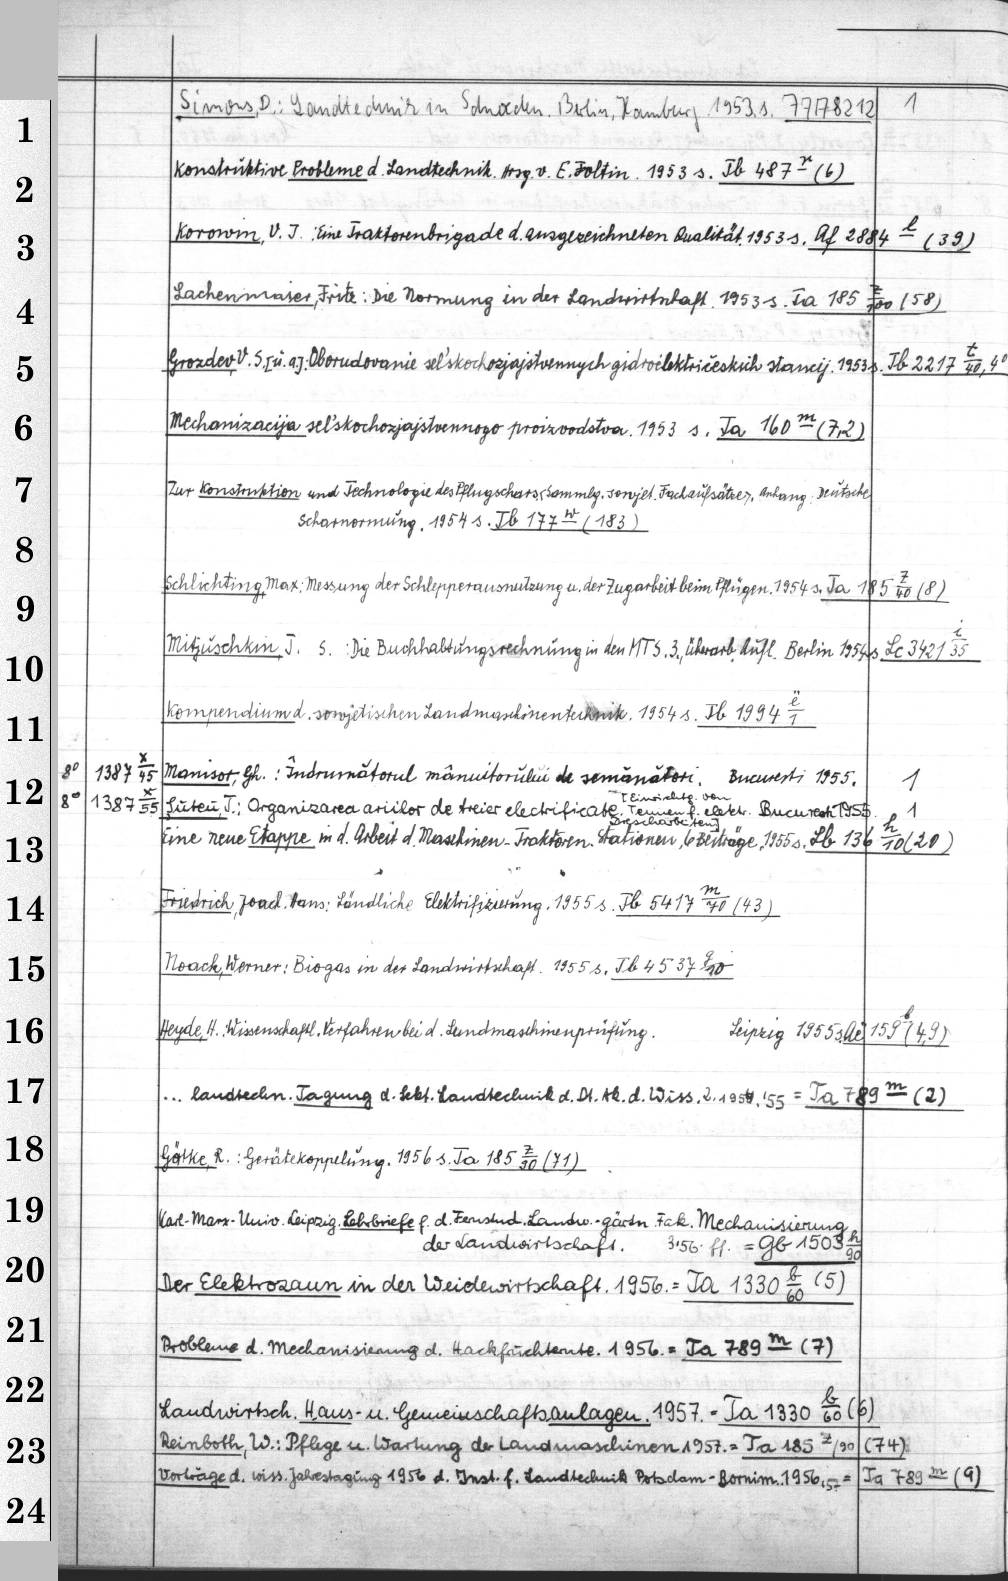 1 Simons, D.: Landtechnik in Schweden. Berlin, Hamburg 1953 s. 77178212 1
2 Konstruktive Probleme d. Landtechnik. Hrsg. v. E. Foltin. 1953 s. Ib 487 r (6)
3 Korowin, V. I.: Eine Traktorenbrigade d. ausgezeichneten Qualität 1953 s. Af 2884 l (39)
4 Lachenmaier, Fritz: Die Normung in der Landwirtschaft. 1953 s. Ia 185 z/100 (58)
5 Grozdev, V. S. [u. a.]: Oborudovanie sel'skochozjajstvennych gidroėlektričeskich stancij. 1953 s. Ib 2217 t/40, 4°
6 Mechanizacija sel'skochozjajstvennogo proizvodstva. 1953 s. Ia 160 m (7,2)
7 Zur Konstruktion und Technologie des Pflugschars, Sammlg. sowjet. Fachaufsätze, Anhang: Deutsche
Scharnormung. 1954 s. Ib 177 w (183)
8
9 Schlichting, Max: Messung der Schlepperausnutzung u. der Zugarbeit beim Pflügen. 1954 s. Ia 185 z/40 (8)
10 Mitjuschkin, I. S.: Die Buchhaltungsrechnung in den MTS. 3., überarb. Aufl. Berlin 1954 s. Lc 3421 i/35
11 Kompendium d. sowjetischen Landmaschinentechnik. 1954 s. Ib 1994 ë/1
8° 1387 x/45 Manisor, Gh.: Îndrumătorul mânuitorului de semănători. Bucuresti 1955. 1
12 8° 1387 x/55 Suteu, I.: Organizarea ariilor de treier electrificate. [Einrichtg. von Tennen f. elektr. Drescharbeiten] Bucuresti 1955. 1
13 Eine neue Etappe in d. Arbeit d. Maschinen-Traktoren-Stationen, 6 Beiträge, 1955 s. Lb 136 h/10 (20)
14 Friedrich, Joach. Hans: Ländliche Elektrifizierung. 1955 s. Ib 5417 m/40 (43)
15 Noack, Werner: Biogas in der Landwirtschaft. 1955 s. Ib 4537 g/10
16 Heyde, H.: Wissenschaftl. Verfahren bei d. Landmaschinenprüfung. Leipzig 1955 s. Ac 159 b (4,9)
17 ... landtechn. Tagung d. Sekt. Landtechnik d. Dt. Ak. d. Wiss. 2. 1954, '55 = Ia 789 m (2)
18 Götke, R.: Gerätekoppelung. 1956 s. Ia 185 z/30 (71)
19 Karl-Marx-Univ. Leipzig. Lehrbriefe f. d. Fernstud. Landw.-gärtn. Fak. Mechanisierung
der Landwirtschaft. 3.56 ff. = Gb 1503 h/90
20 Der Elektrozaun in der Weidewirtschaft. 1956. = Ia 1330 b/60 (5)
21 Probleme d. Mechanisierung d. Hackfruchternte. 1956. = Ia 789 m (7)
22 Landwirtsch. Haus- u. Gemeinschaftsanlagen. 1957. = Ia 1330 b/60 (6)
23 Reinboth, W.: Pflege u. Wartung der Landmaschinen 1957. = Ia 185 z/90 (74)
Vorträge d. wiss. Jahrestagung 1956 d. Inst. f. Landtechnik Potsdam-Bornim. 1956, 57 = Ia 789 m (9)
24